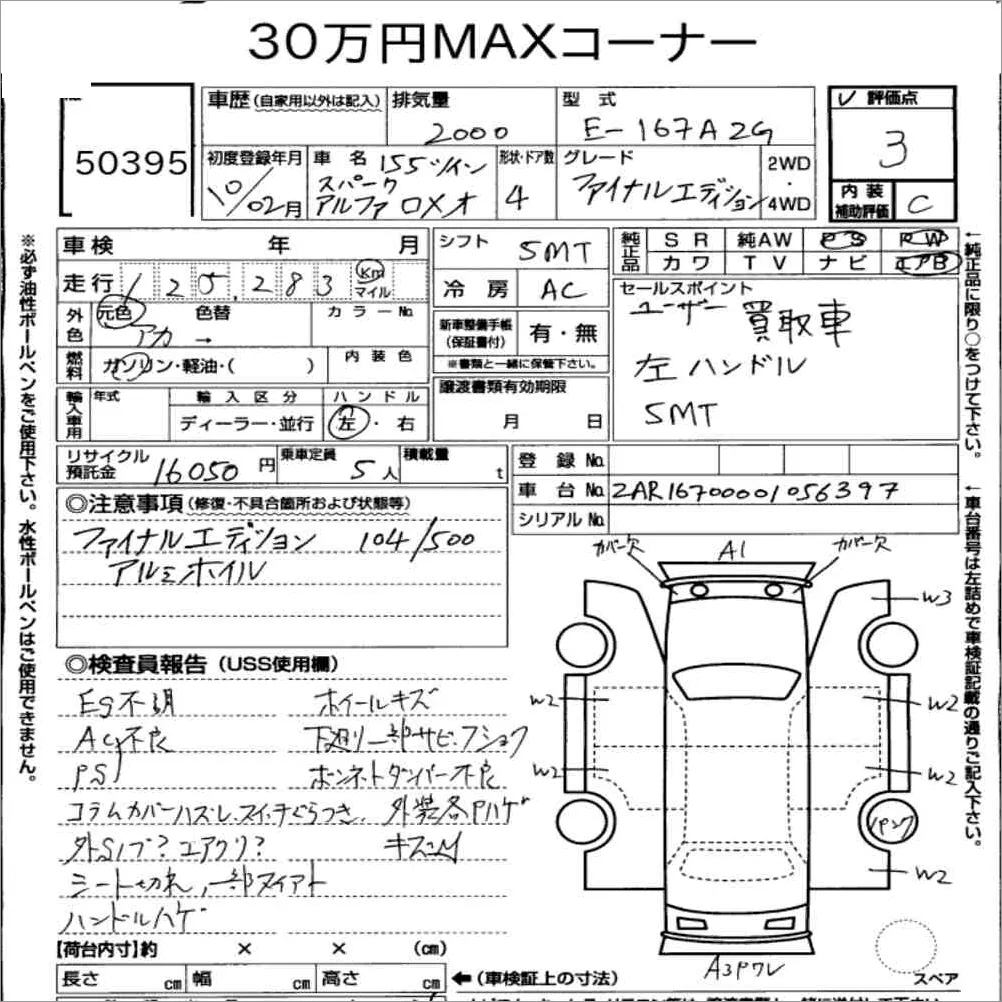 30万円MAXコーナー
50395
車歴(自家用以外は記入) 排気量 2000 型 式 E-167A2G
初度登録年月 10/02月 車 名 155ツインスパーク アルファロメオ 形状・ドア数 4 グレード ファイナルエディション 2WD・4WD
評価点 3
内装補助評価 C
車検 年 月
走行 125,283 Km マイル
外色 元色 アカ → 色替 カラーNo.
燃料 ガソリン・軽油・( ) 内装色
輸入車用 年式 輸入区分 ディーラー・並行 ハンドル 左・右
シフト 5MT
冷房 AC
新車整備手帳(保証書付) 有・無
※書類と一緒に保管下さい。
譲渡書類有効期限
月 日
純正品 SR 純AW PS PW
カワ TV ナビ エアB
セールスポイント
ユーザー買取車
左ハンドル
5MT
リサイクル預託金 16050円 乗車定員 5人 積載量 t
登録No.
車台No. ZAR16700001056397
シリアルNo.
◎注意事項(修復・不具合箇所および状態等)
ファイナルエディション 104/500
アルミホイル
◎検査員報告(USS使用欄)
Eg不調 ホイールキズ
AC不良 下廻り一部サビ・フショク
PS ボンネットダンパー不良
コラムカバーハズレ、スイッチぐらつき、外装各Pハゲ
外Sノブ?エアクリ? キズ
シート切れ、一部スイアト
ハンドルハゲ
カバー欠 A1 カバー欠
W3
W2 W2
W2 W2
パンク
W2
A3Pワレ
スペア
【荷台内寸】約 × × (cm)
長さ cm 幅 cm 高さ cm
←(車検証上の寸法)
※必ず油性ボールペンをご使用下さい。水性ボールペンはご使用できません。
←純正品に限り○をつけて下さい。
←車台番号は左詰めで車検証記載の通りご記入下さい。